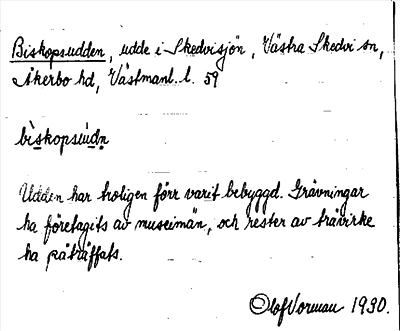 Biskopsudden, udde i Skedvisjön, Västra Skedvi sn,
Åkerbo hd, Västmanl. l. 59
bìskopsúdn
Udden har troligen förr varit bebyggd. Grävningar
ha företagits av museimän, och rester av trävirke
ha påträffats.
Olof Vorman 1930.